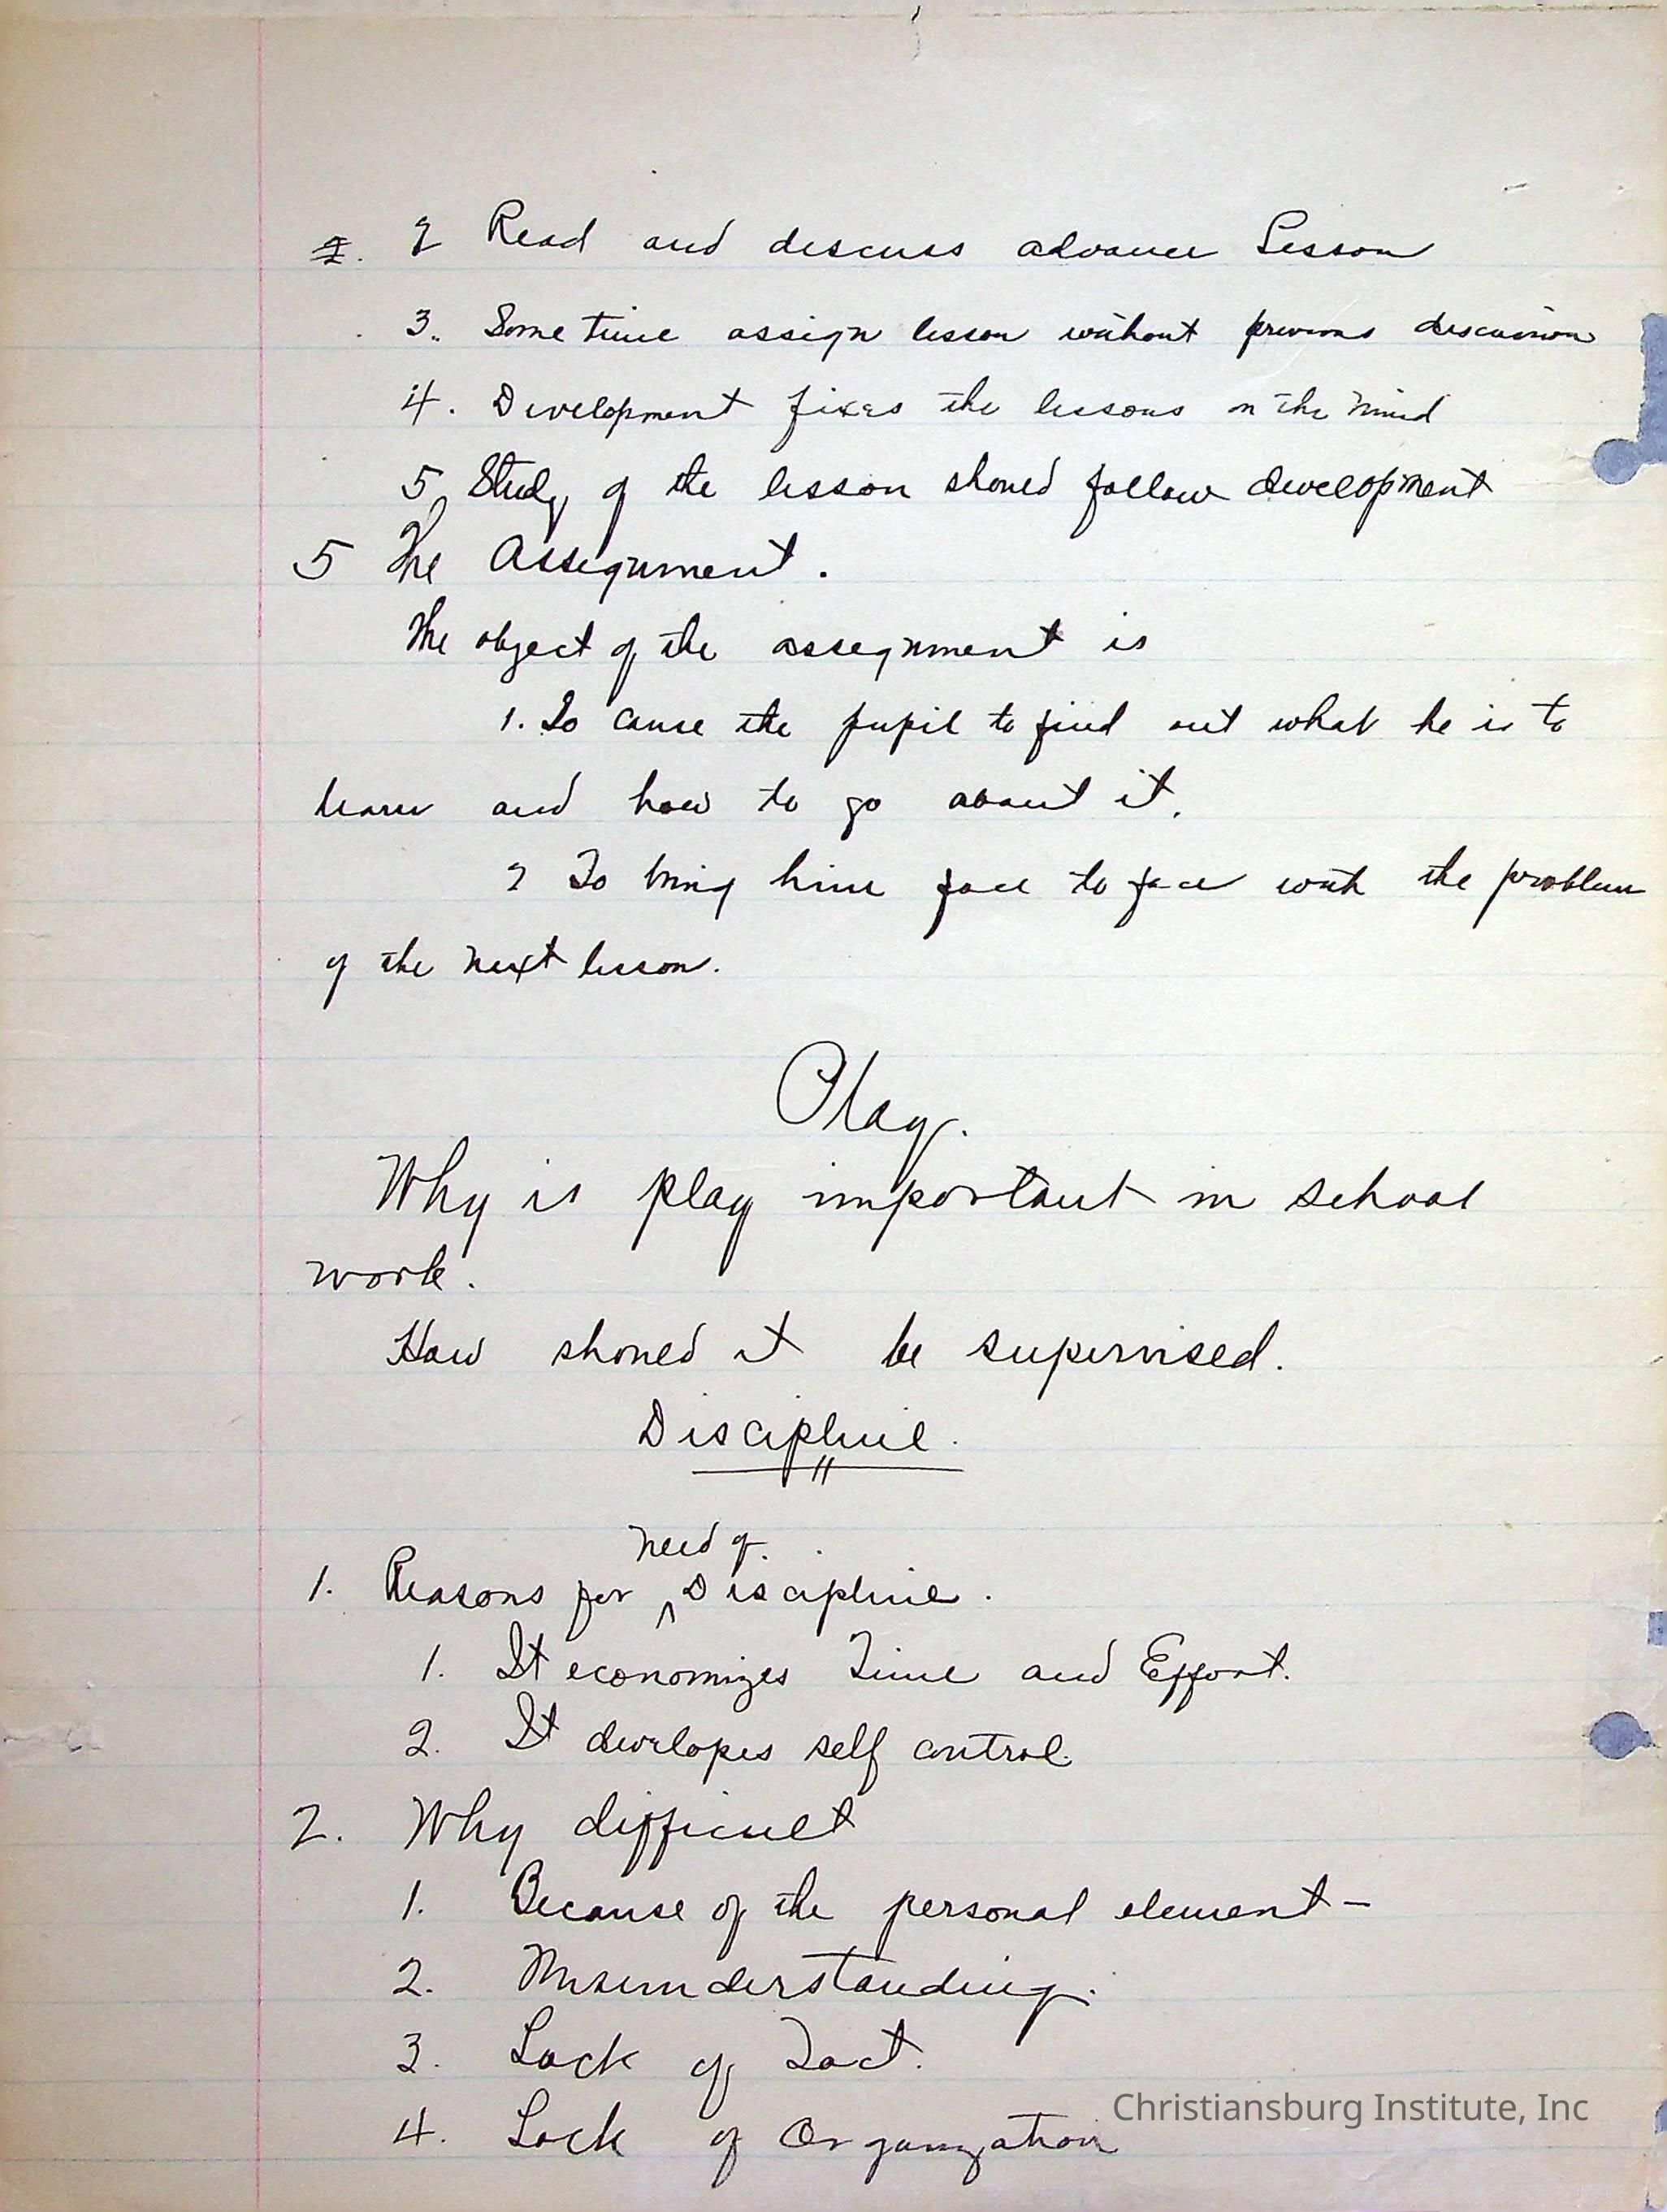 2. 2 Read and discuss advance Lesson
3. Some time assign lesson without previous discussion
4. Development fixes the lessons in the mind
5, Study of the lesson should follow development
5 The Assignment.
The object of the assignment is
1. To cause the pupil to find out what he is to
learn and how to go about it.
2 To bring him face to face with the problem
of the next lesson.
Play.
Why is play important in school
work.
How should it be supervised.
Discipline.
need of.
1. Reasons for ^ Discipline.
1. It economizes Time and Effort.
2. It developes self control.
2. Why difficult
1. Because of the personal element -
2. Misunderstanding.
3. Lack of Tact.
4. Lack of Organization
Christiansburg Institute, Inc